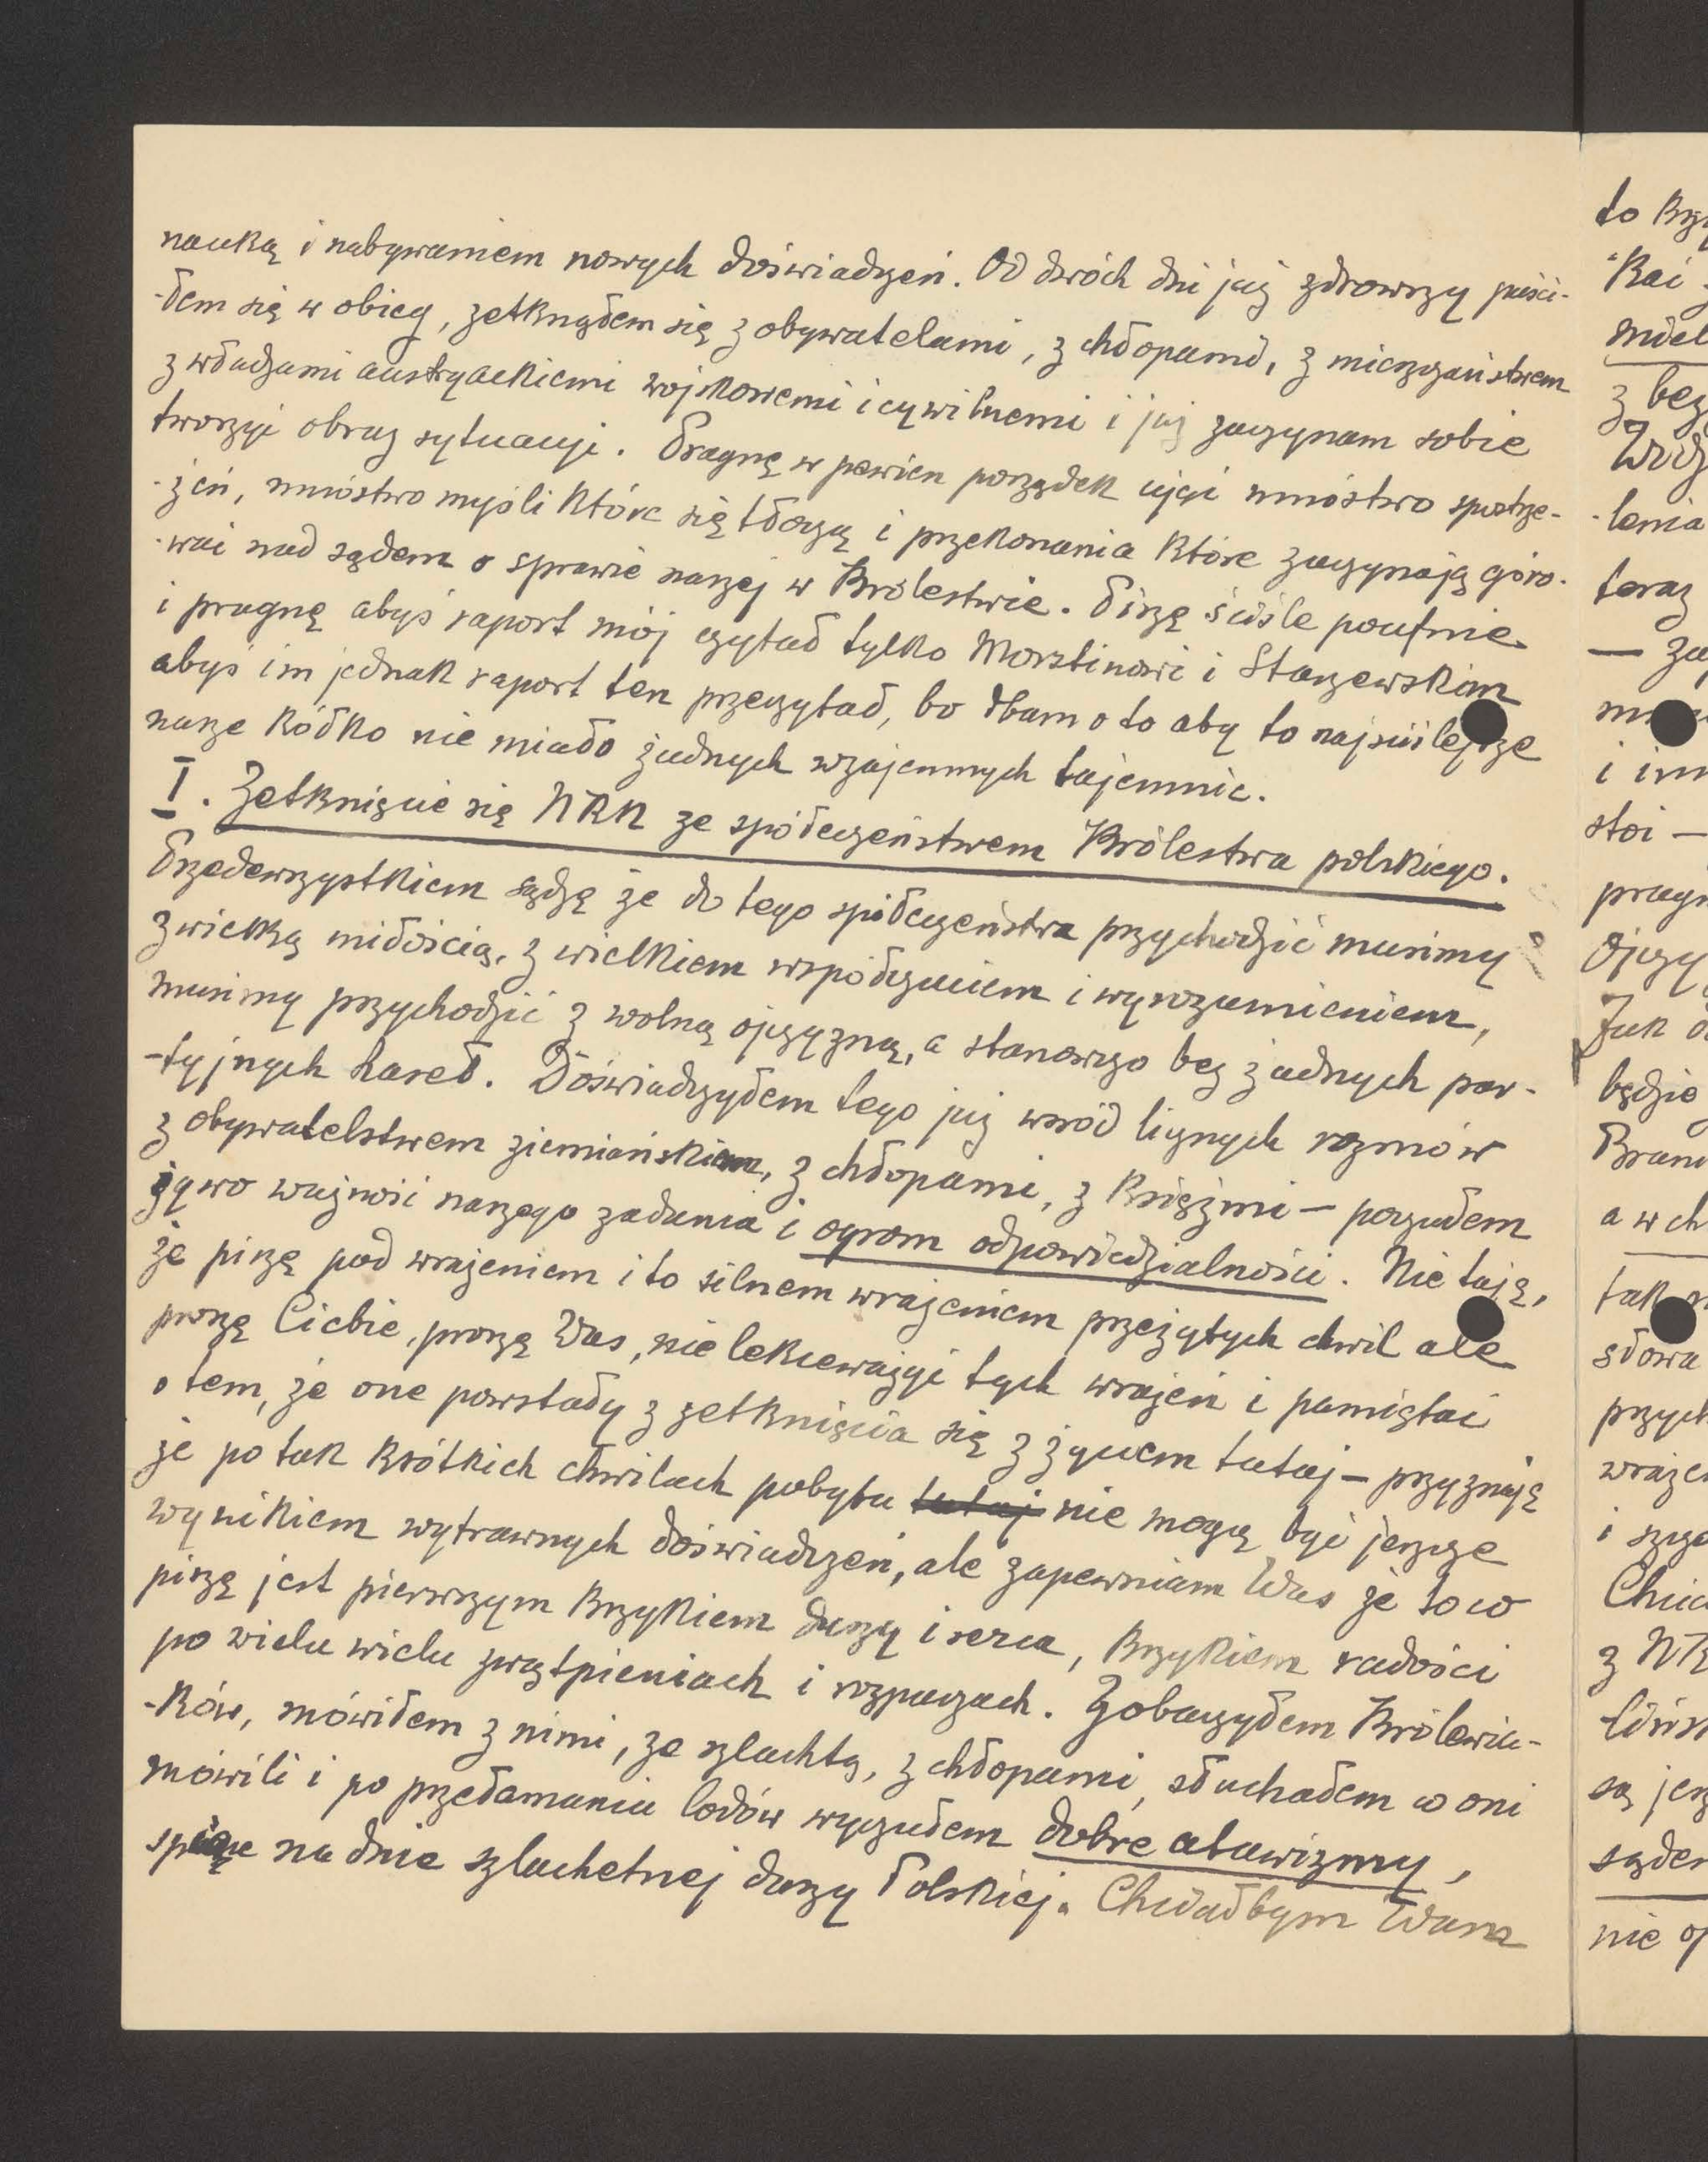 nauką i nabywaniem nowych doświadczeń. Od dwóch dni już zdrowszy puści-
-łem się w obieg, zetknąłem się z obywatelami, z chłopami, z mieszczaństwem
z władzami austryackiemi wojskowemi i cywilnemi i już zaczynam sobie
tworzyć obraz sytuacyi. Pragnę w pewien porządek ująć mnóstwo spostrze-
-żeń, mnóstwo myśli które się tłoczą i przekonania które zaczynają góro-
-wać nad sądem o sprawie naszej w Królestwie. Piszę ściśle poufnie
i pragnę abyś raport mój czytał tylko Morstinowi i Starzewskim
abyś im jednak raport ten przeczytał, bo dbam o to aby to najściślejsze
nasze kółko nie miało żadnych wzajemnych tajemnic.
I. Zetknięcie się NKN ze społeczeństwem Królestwa polskiego.
Przedewszystkiem sądzę że do tego społeczeństwa przychodzić musimy
z wielką miłością, z wielkiem współczuciem i wyrozumieniem,
musimy przychodzić z wolną ojczyzną, a stanowczo bez żadnych par-
-tyjnych haseł. Doświadczyłem tego już wśród licznych rozmów
z obywatelstwem ziemiańskiem, z chłopami, z księżmi — poczułem
żywo ważność naszego zadania i ogrom odpowiedzialności. Nie taję,
że piszę pod wrażeniem i to silnem wrażeniem przeżytych chwil ale
proszę Ciebie, proszę Was, nie lekceważyć tych wrażeń i pamiętać
o tem, że one powstały z zetknięcia się z życiem tutaj — przyznaję
że po tak krótkich chwilach pobytu tutaj nie mogą być jeszcze
wynikiem wytrawnych doświadczeń, ale zapewniam Was że to co
piszę jest pierwszym krzykiem duszy i serca, krzykiem radości
po wielu wielu zwątpieniach i rozpaczach. Zobaczyłem Królewia-
-ków, mówiłem z nimi, ze szlachtą, z chłopami, słuchałem co oni
mówili i po przełamaniu lodów wyczułem dobre atawizmy,
śpiące na dnie szlachetnej duszy Polskiej. Chciałbym Wam